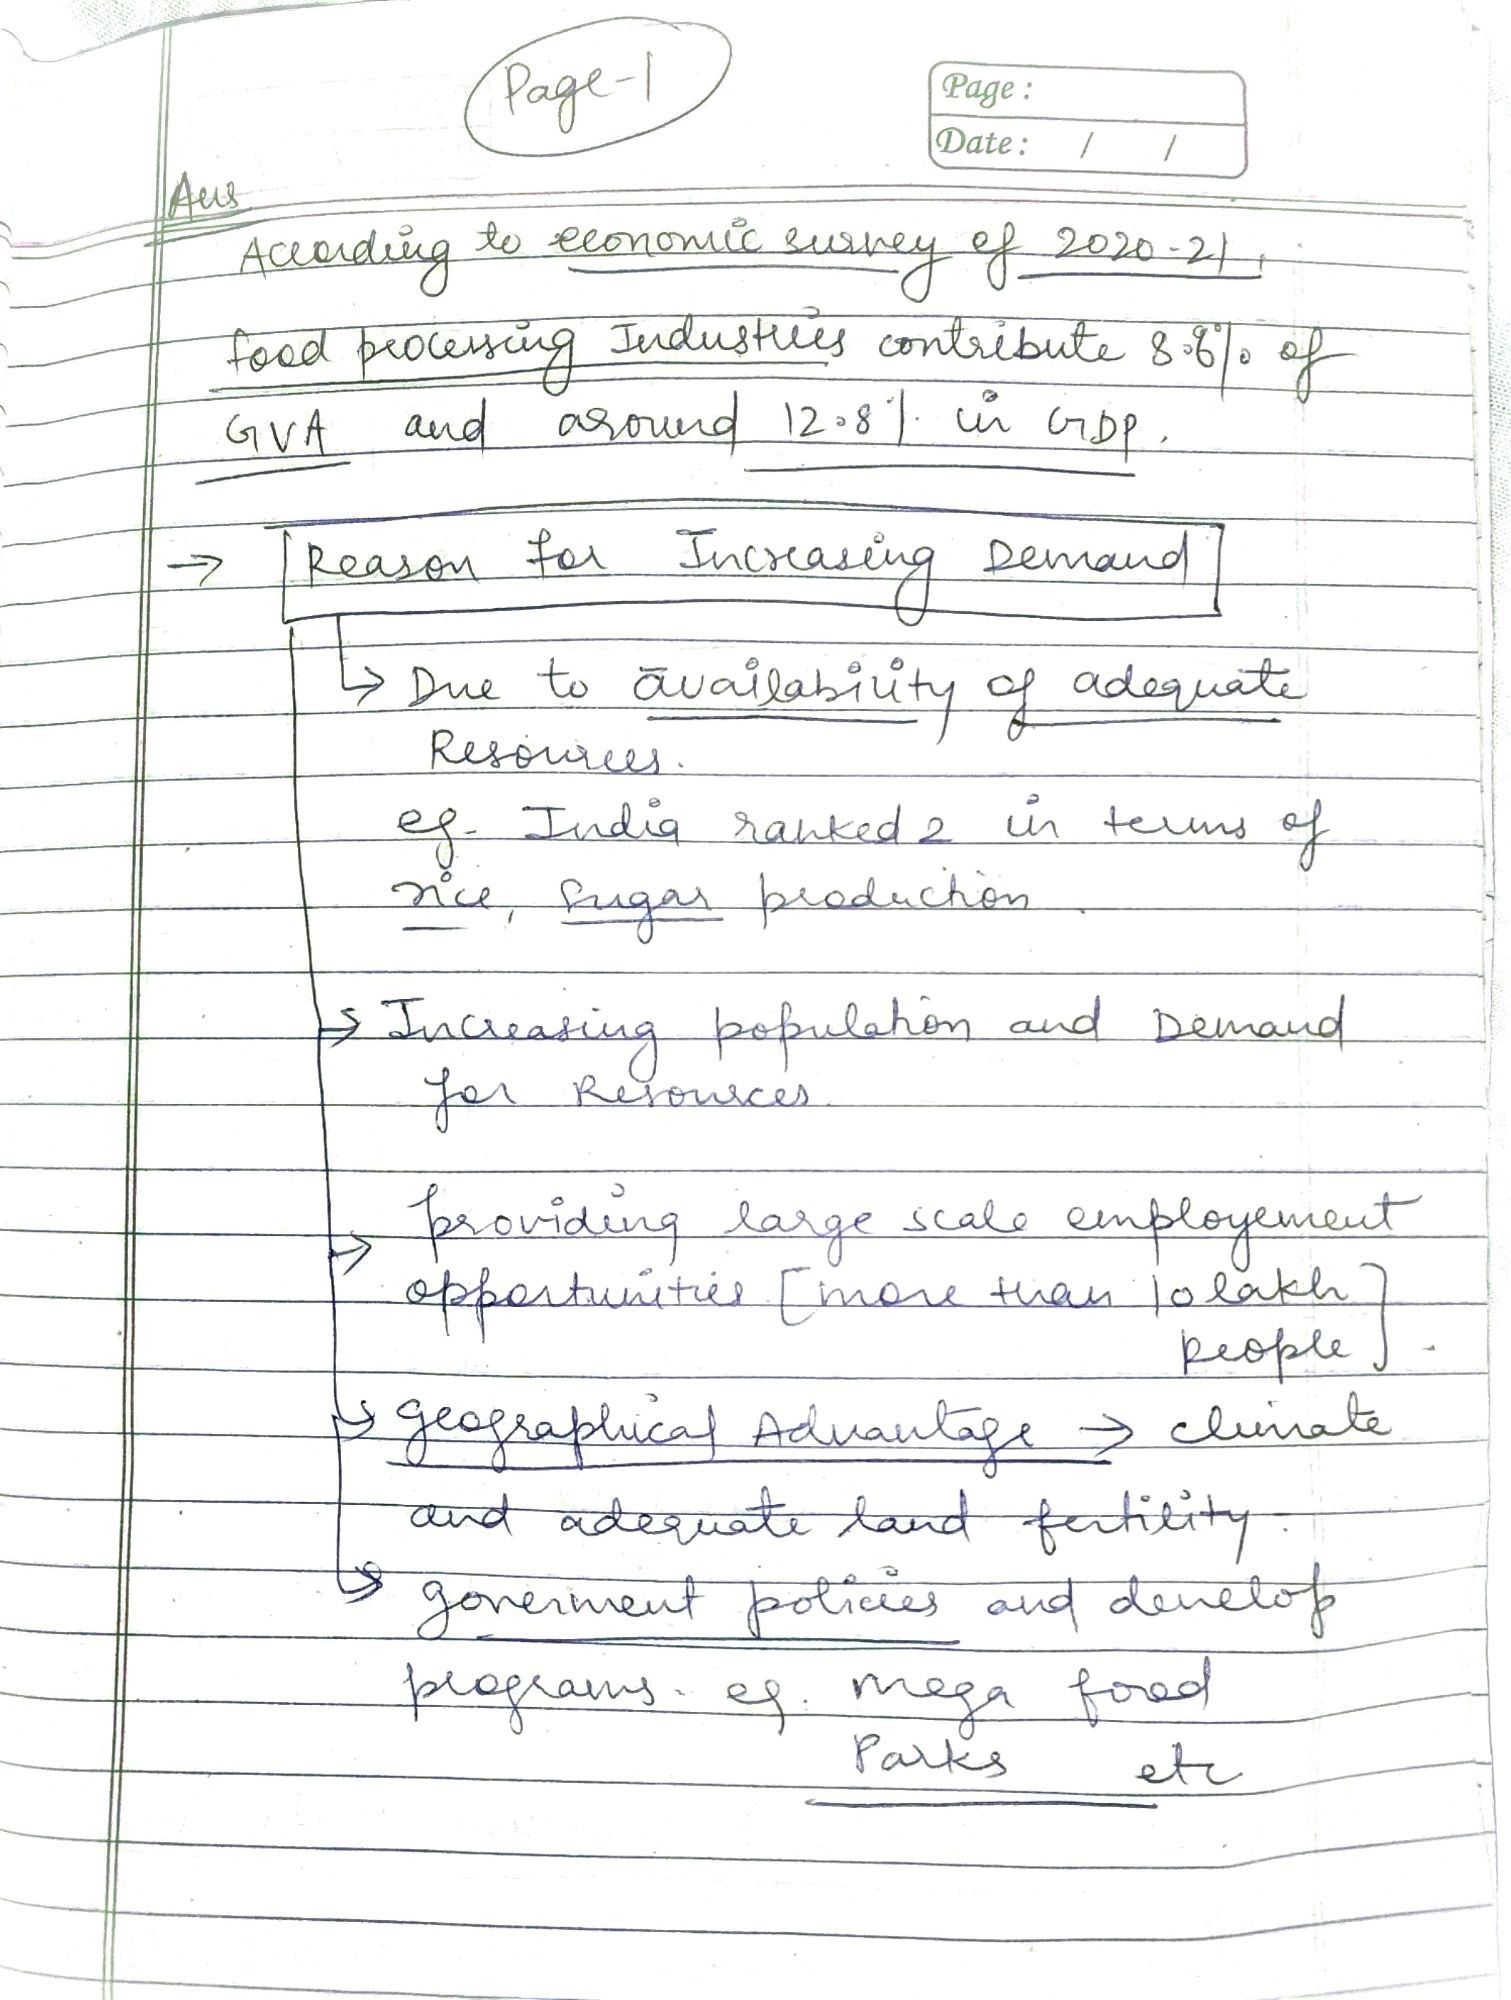 Page-1
Page:
Date: / /
Ans
According to economic survey of 2020-21,
food processing Industries contribute 8.8% of
GVA and around 12.8% in GDP.
→ Reason for Increasing Demand
↳ Due to availability of adequate
Resources.
eg. India ranked 2 in terms of
rice, sugar production.
↳ Increasing population and Demand
for Resources.
→ providing large scale employement
opportunities [more than 10 lakh
people].
↳ geographical Advantage → climate
and adequate land fertility.
↳ goverment policies and develop
programs. eg. mega food
Parks etc